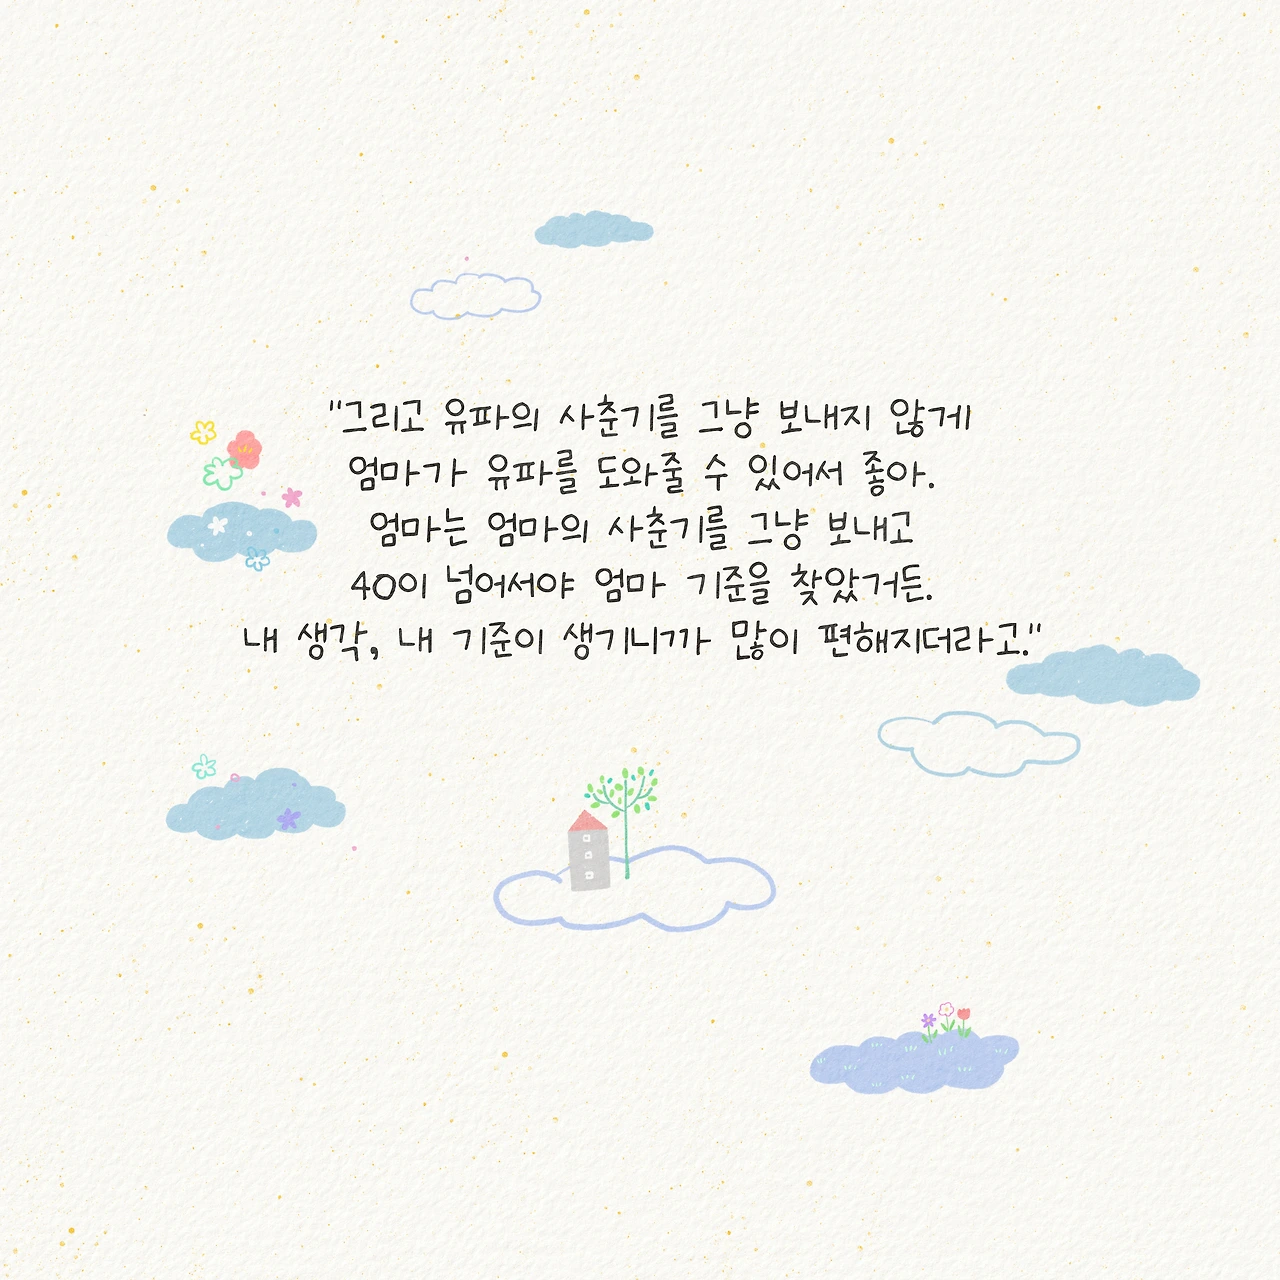 "그리고 유파의 사춘기를 그냥 보내지 않게
엄마가 유파를 도와줄 수 있어서 좋아.
엄마는 엄마의 사춘기를 그냥 보내고
40이 넘어서야 엄마 기준을 찾았거든.
내 생각, 내 기준이 생기니까 많이 편해지더라고."